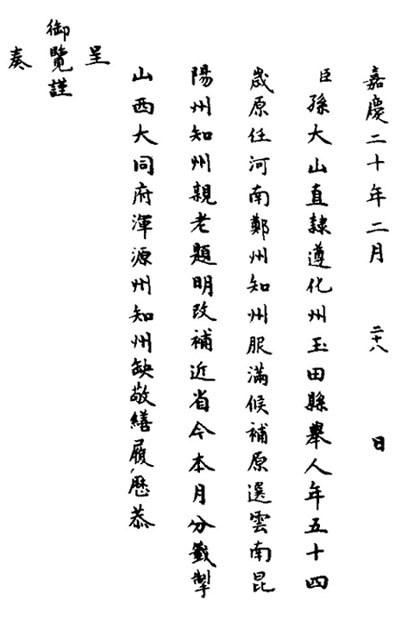 嘉慶二十年二月 二十八 日
臣孫大山直隸遵化州玉田縣舉人年五十四
歲原任河南鄭州知州服滿候補原選雲南昆
陽州知州親老題明改補近省今本月分籤掣
山西大同府渾源州知州缺敬繕履歷恭
呈
御覽謹
奏